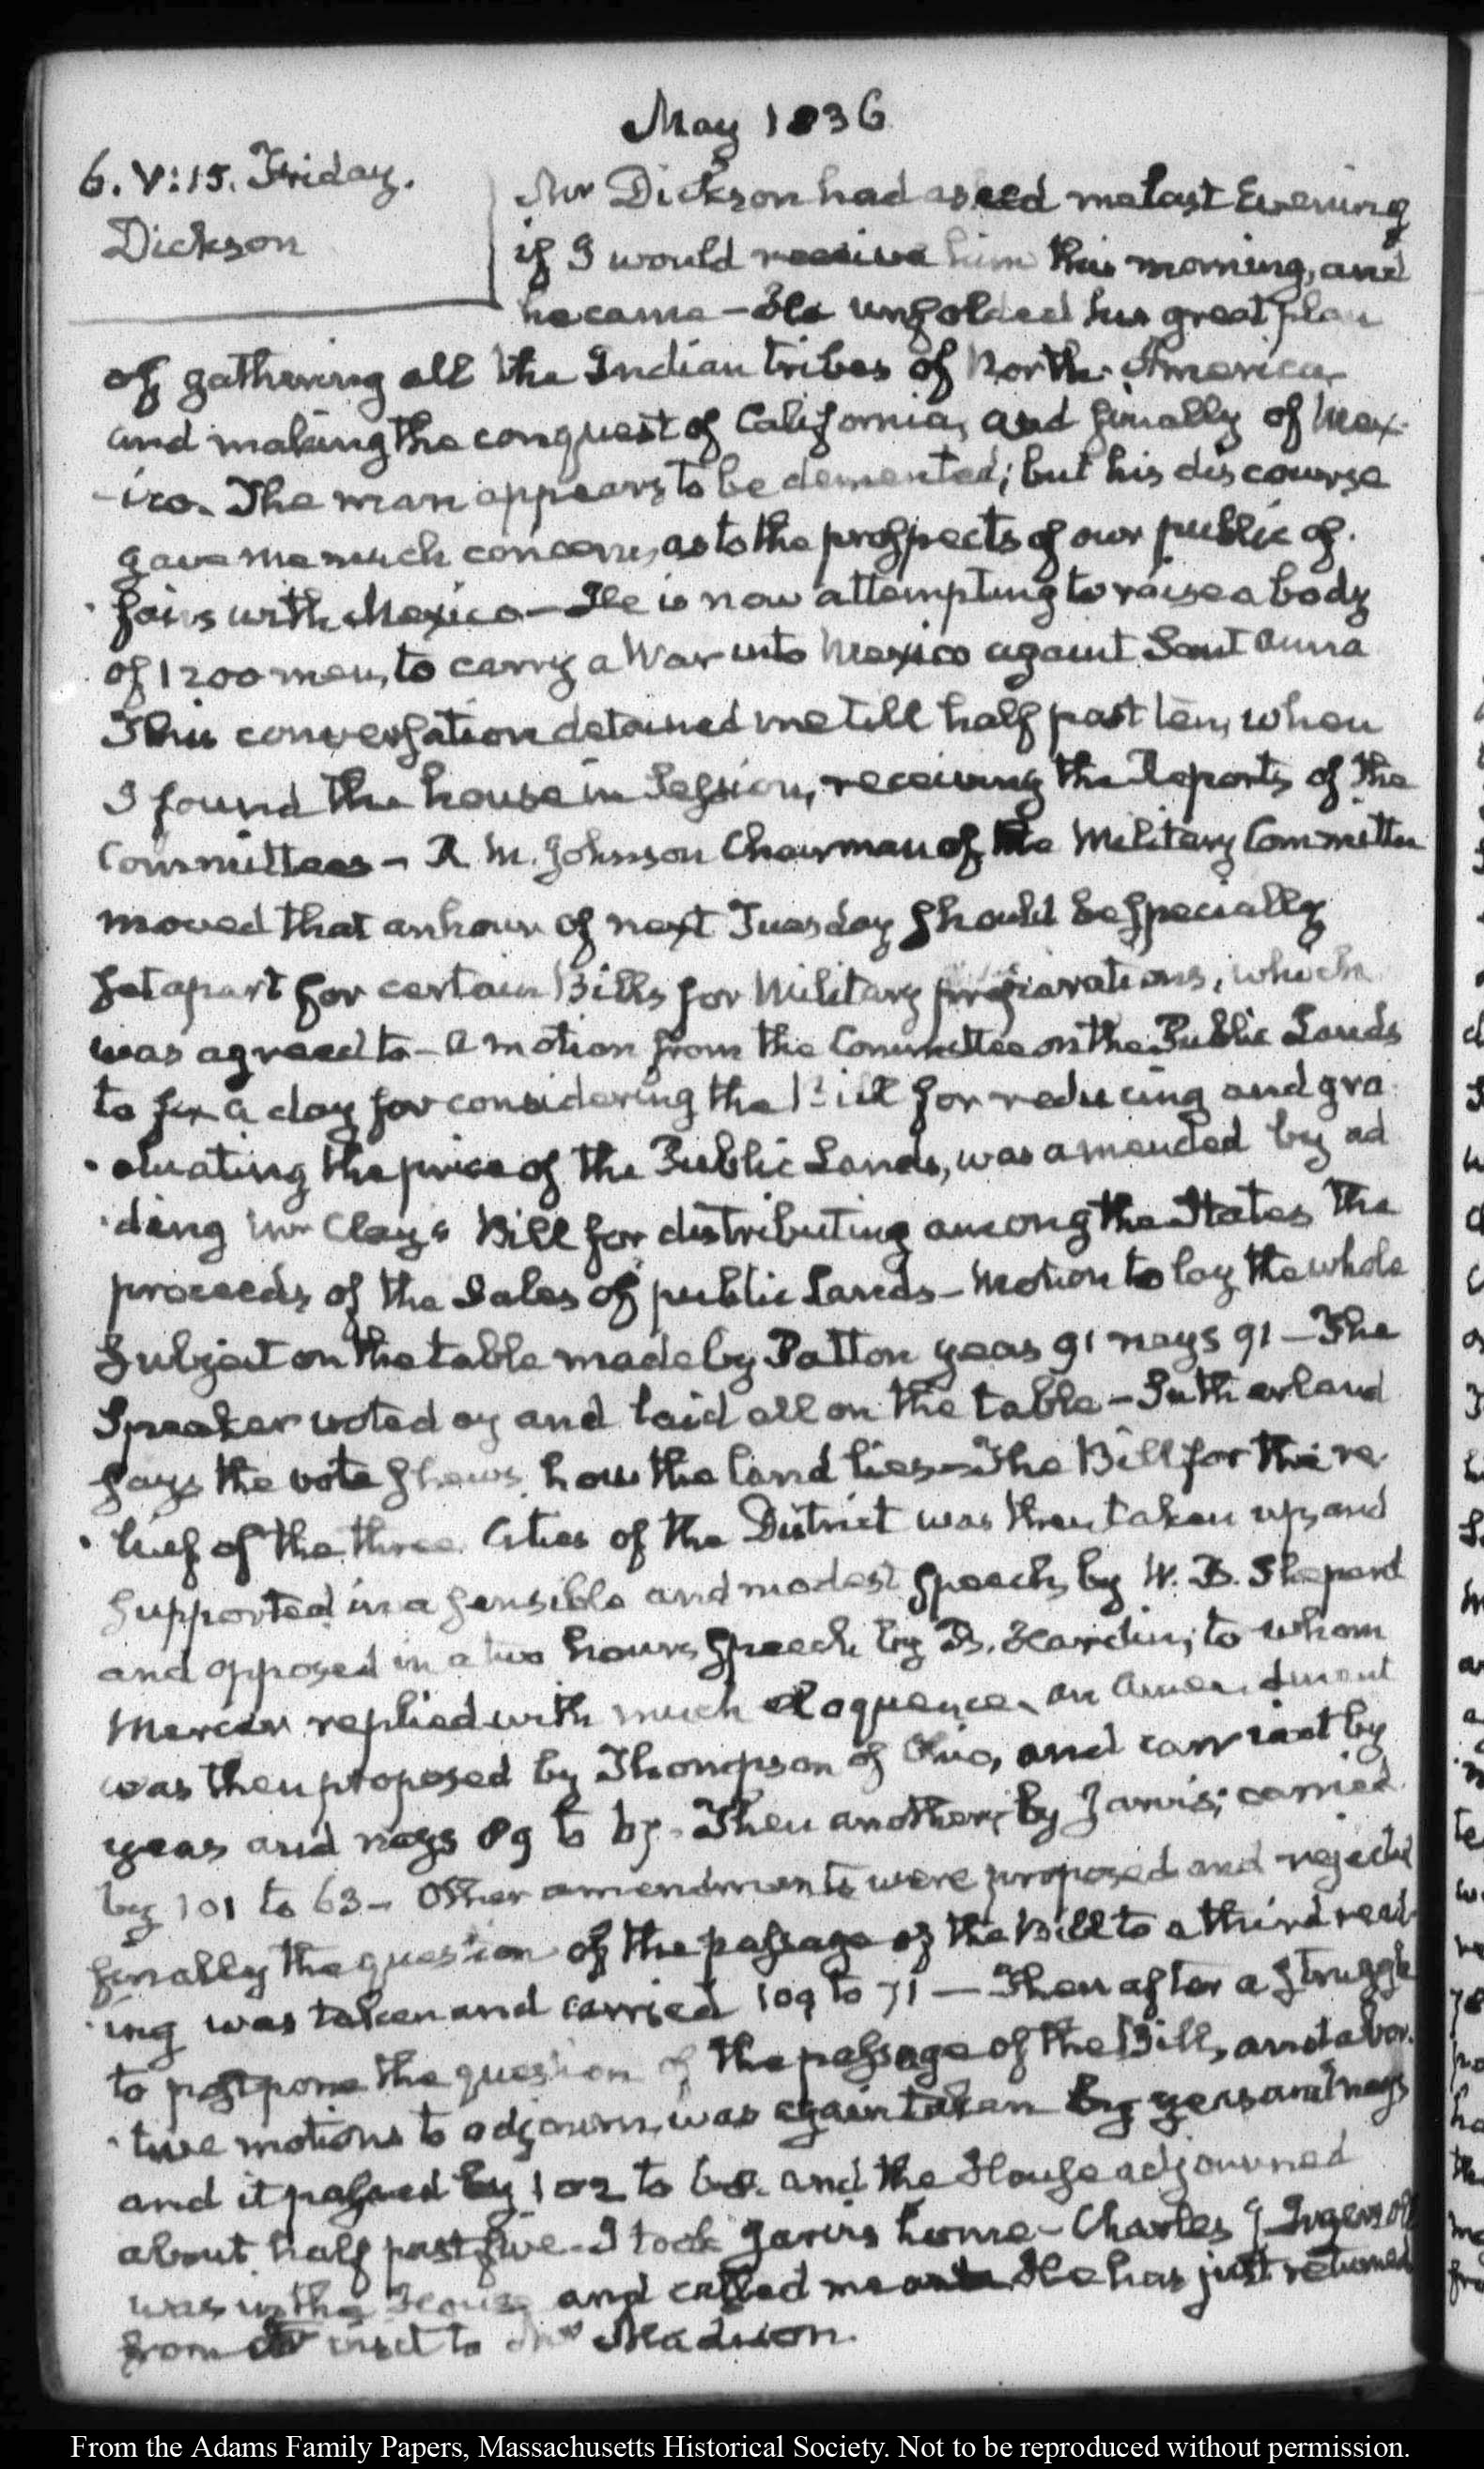 May 1836
6. V:15. Friday.
Dickson
Mr Dickson had asked me last Evening
if I would receive him this morning, and
he came – He unfolded his great plan
of gathering all the Indian tribes of North-America
and making the conquest of California, and finally of Mex-
-ico. The man appears to be demented; but his discourse
gave me much concern, as to the prospects of our public af-
-fairs with Mexico – He is now attempting to raise a body
of 1200 men, to carry a War into Mexico against Sant Anna
This conversation detained me till half past ten, when
I found the house in Session, receiving the Reports of the
Committees – R. M. Johnson Chairman of the Military Committee
moved that an hour of next Tuesday should be specially
set apart for certain Bills for Military preparations, which
was agreed to – A motion from the Committee on the Public Lands
to fix a day for considering the Bill for reducing and gra-
-duating the price of the Public Lands, was amended by ad
-ding Mr Clay's Bill for distributing among the States the
proceeds of the Sales of public Lands – Motion to lay the whole
Subject on the table made by Patton yeas 91 nays 91 – The
Speaker voted ay and laid all on the table – Sutherland
says the vote shews how the land lies – The Bill for the re-
-lief of the three Cities of the District was then taken up, and
supported in a sensible and modest speech, by W. B. Shepard
and opposed in a two hours speech by B. Hardin; to whom
Mercer replied with much eloquence. an Amendment
was then proposed by Thompson of Ohio, and carried by
yeas and nays 89 to 67. Then another, by Jarvis; carried
by 101 to 63 – Other amendments were proposed and rejected
finally the question of the passage of the Bill to a third read-
-ing was taken and carried 109 to 71 – Then after a struggle
to postpone the question of the passage of the Bill, and abor-
-tive motions to adjourn, was again taken by yeas and nays
and it passed by 102 to 68. and the House adjourned
about half past five – I took Jarvis home – Charles J Ingersoll
was in the House and called me out. He has just returned
from visit to Mr Madison.
From the Adams Family Papers, Massachusetts Historical Society. Not to be reproduced without permission.